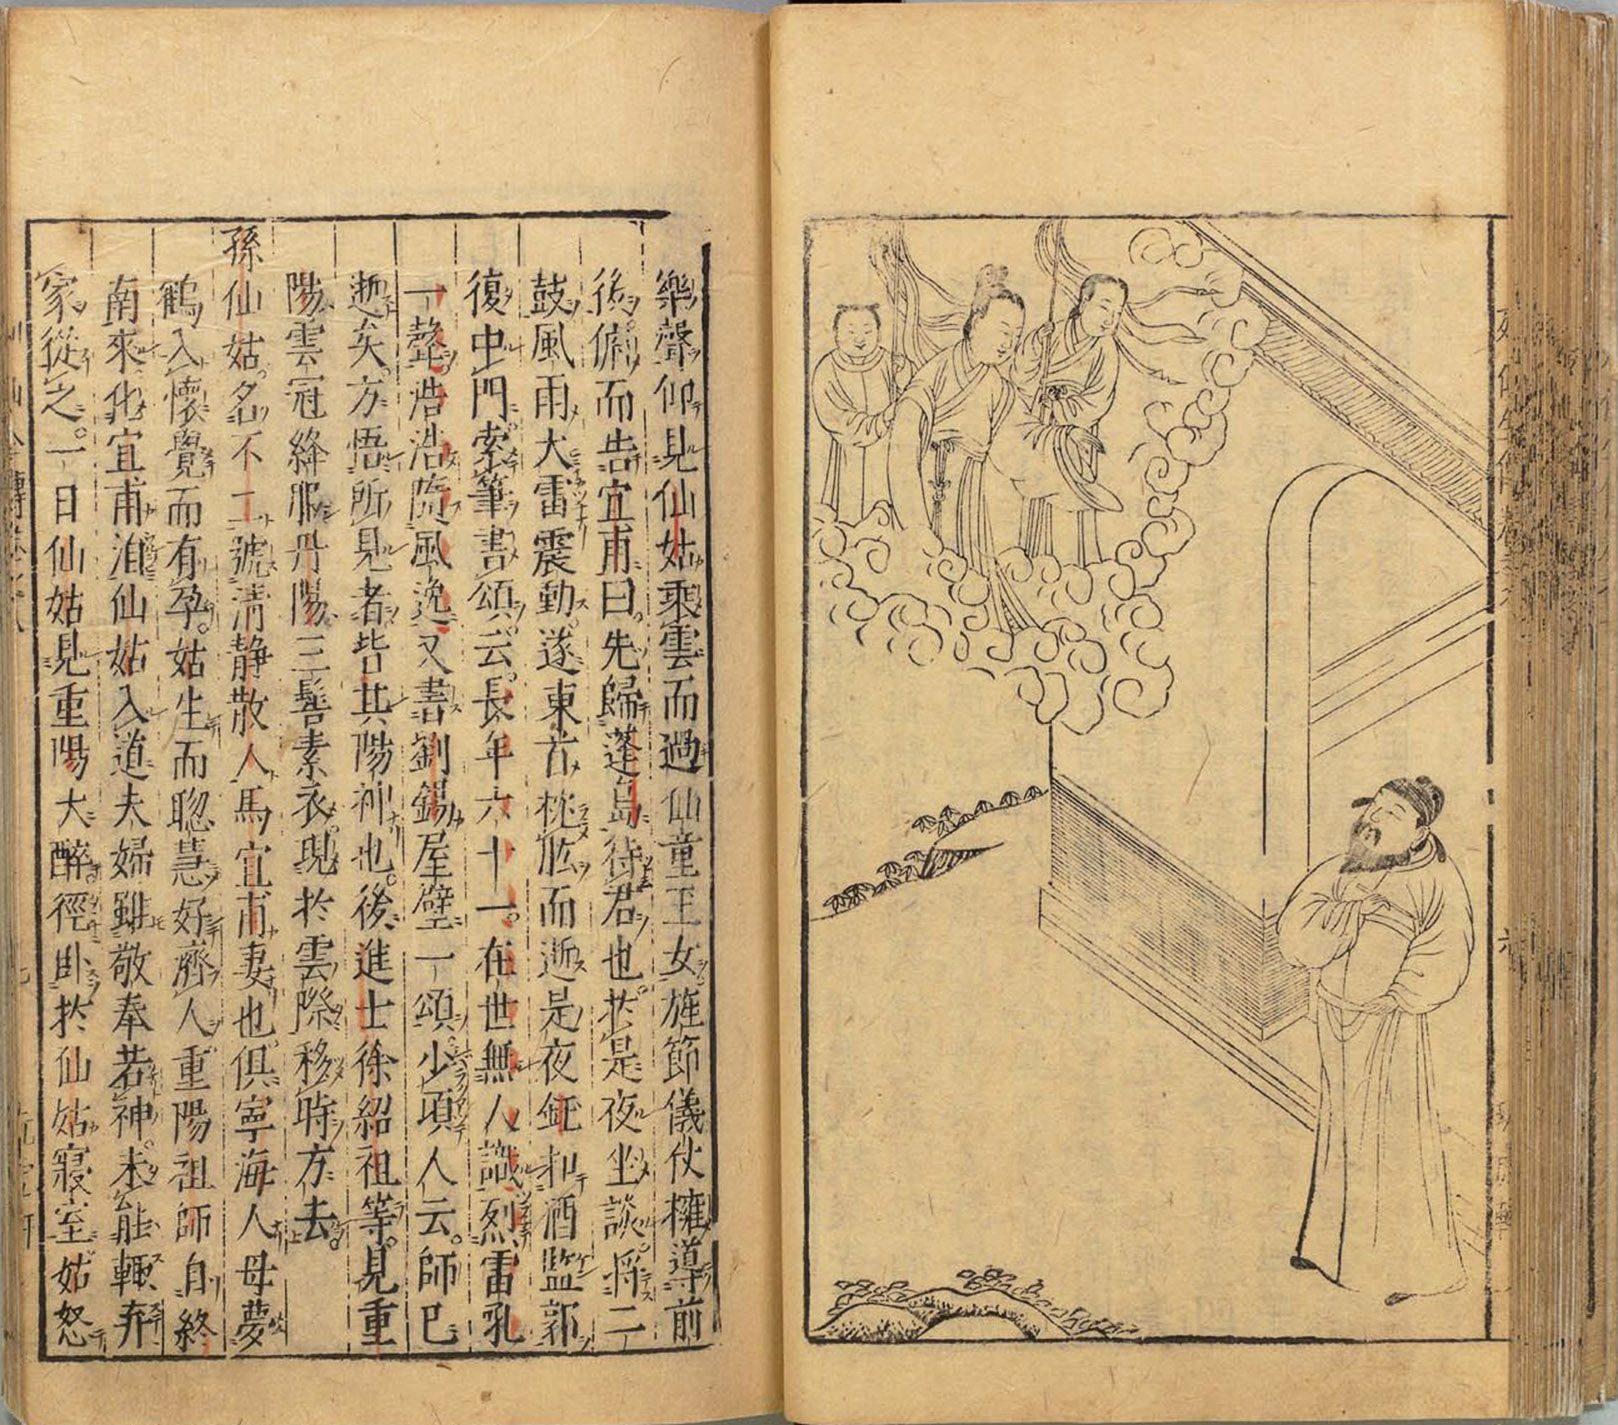 樂聲仰見仙姑乘雲而過仙童玉女旌節儀仗擁導前
後俯而告宜甫曰先歸蓬島待君也於是夜坐談將二
鼓風雨大雷震動遂東首枕肱而逝是夜叩酒監郭
復中門索筆書頌云長年六十一在世無人識烈雷吼
一聲浩浩隨風逸又書劉錫屋壁一頌少項人云師已
逝矣方悟所見者皆其陽神也後進士徐紹祖等見重
陽雲冠絳服丹陽三髻素衣現於雲際移時方去
孫仙姑名不二號清靜散人馬宜甫妻也俱寧海人母夢
鶴入懷覺而有孕姑生而聰慧好濟人重陽祖師自終
南來化宜甫洎仙姑入道夫婦雖敬奉若神未能輙弃
家從之一日仙姑見重陽大醉徑臥於仙姑寢室姑怒